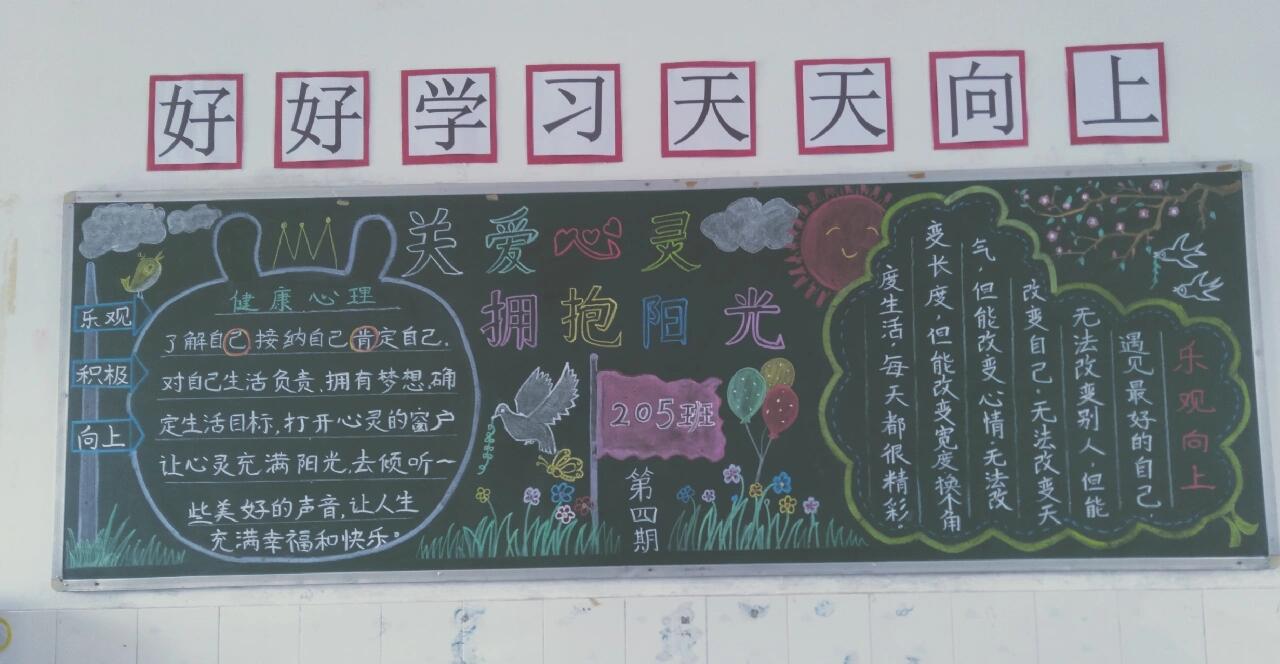 好好学习天天向上
关爱心灵
拥抱阳光
乐观
积极
向上
健康心理
了解自己接纳自己肯定自己.
对自己生活负责.拥有梦想.确
定生活目标,打开心灵的窗户
让心灵充满阳光,去倾听一
些美好的声音,让人生
充满幸福和快乐。
205班
第四期
乐观向上
遇见最好的自己
无法改变别人.但能
改变自己.无法改变天
气.但能改变心情.无法改
变长度.但能改变宽度换个角
度生活.每天都很精彩